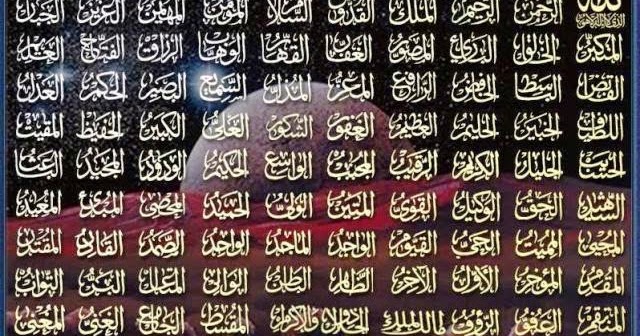 الله الرحمن الرحيم الملك القدوس السلام المؤمن المهيمن العزيز الجبار
المتكبر الخالق البارئ المصور الغفار القهار الوهاب الرزاق الفتاح العليم
القابض الباسط الخافض الرافع المعز المذل السميع البصير الحكم العدل
اللطيف الخبير الحليم العظيم الغفور الشكور العلي الكبير الحفيظ المقيت
الحسيب الجليل الكريم الرقيب المجيب الواسع الحكيم الودود المجيد الباعث
الشهيد الحق الوكيل القوي المتين الولي الحميد المحصي المبدئ المعيد
المحيي المميت الحي القيوم الواجد الماجد الواحد الصمد القادر المقتدر
المقدم المؤخر الأول الآخر الظاهر الباطن الوالي المتعال البر التواب
المنتقم العفو الرؤوف مالك الملك ذو الجلال والإكرام المقسط الجامع الغني المغني